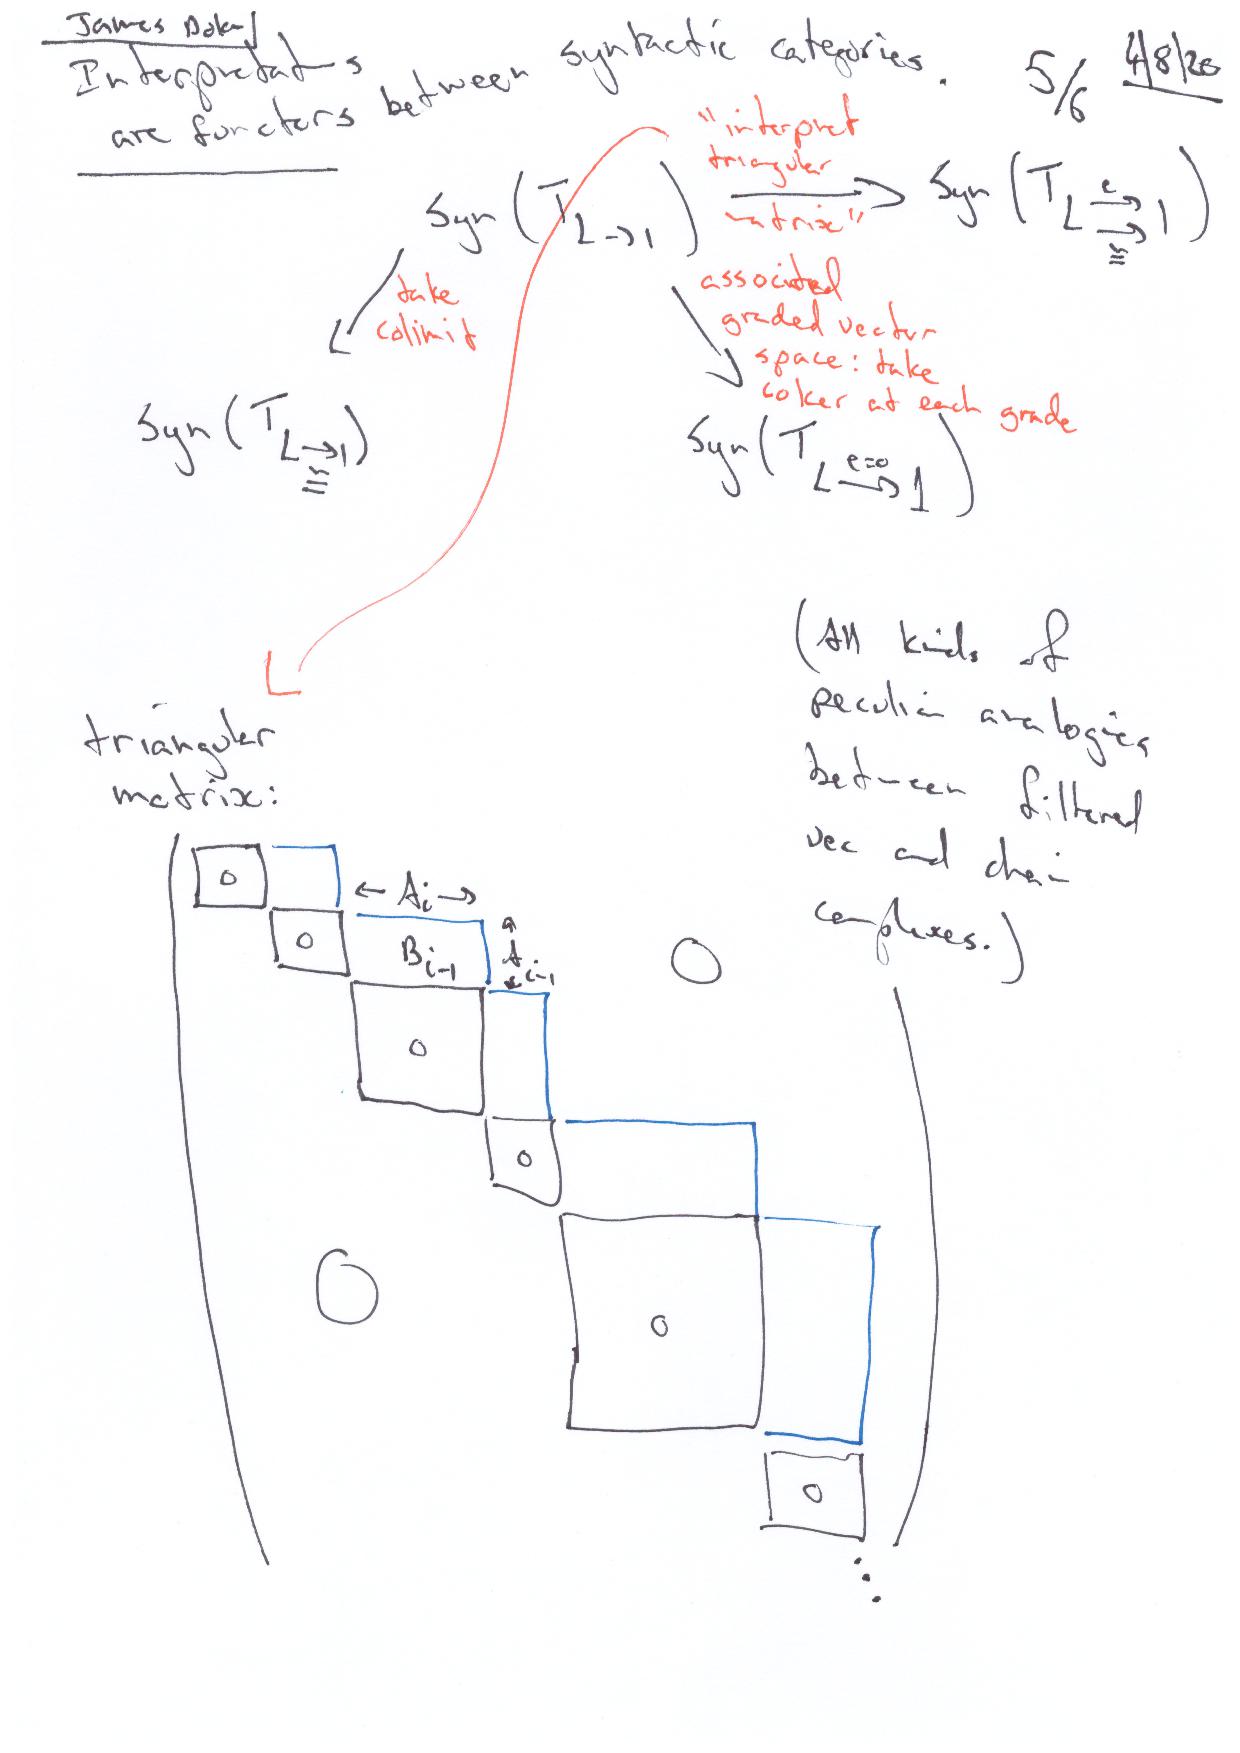 James Dolan
Interpretat-s
are functors between syntactic categories.
5/6 4/8/20
Syn(T L→1)
"interpret
triangular
matrix"
Syn(T L ⇉ 1) e ≅
take
colimit
associated
graded vector
space: take
coker at each grade
Syn(T L→1) ≅
Syn(T L→1) e=0
(All kinds of
peculiar analogies
between filtered
vec and chain
complexes.)
triangular
matrix:
0
0
← A_i →
B_{i-1}
A_{i-1}
0
0
0
0
0
0